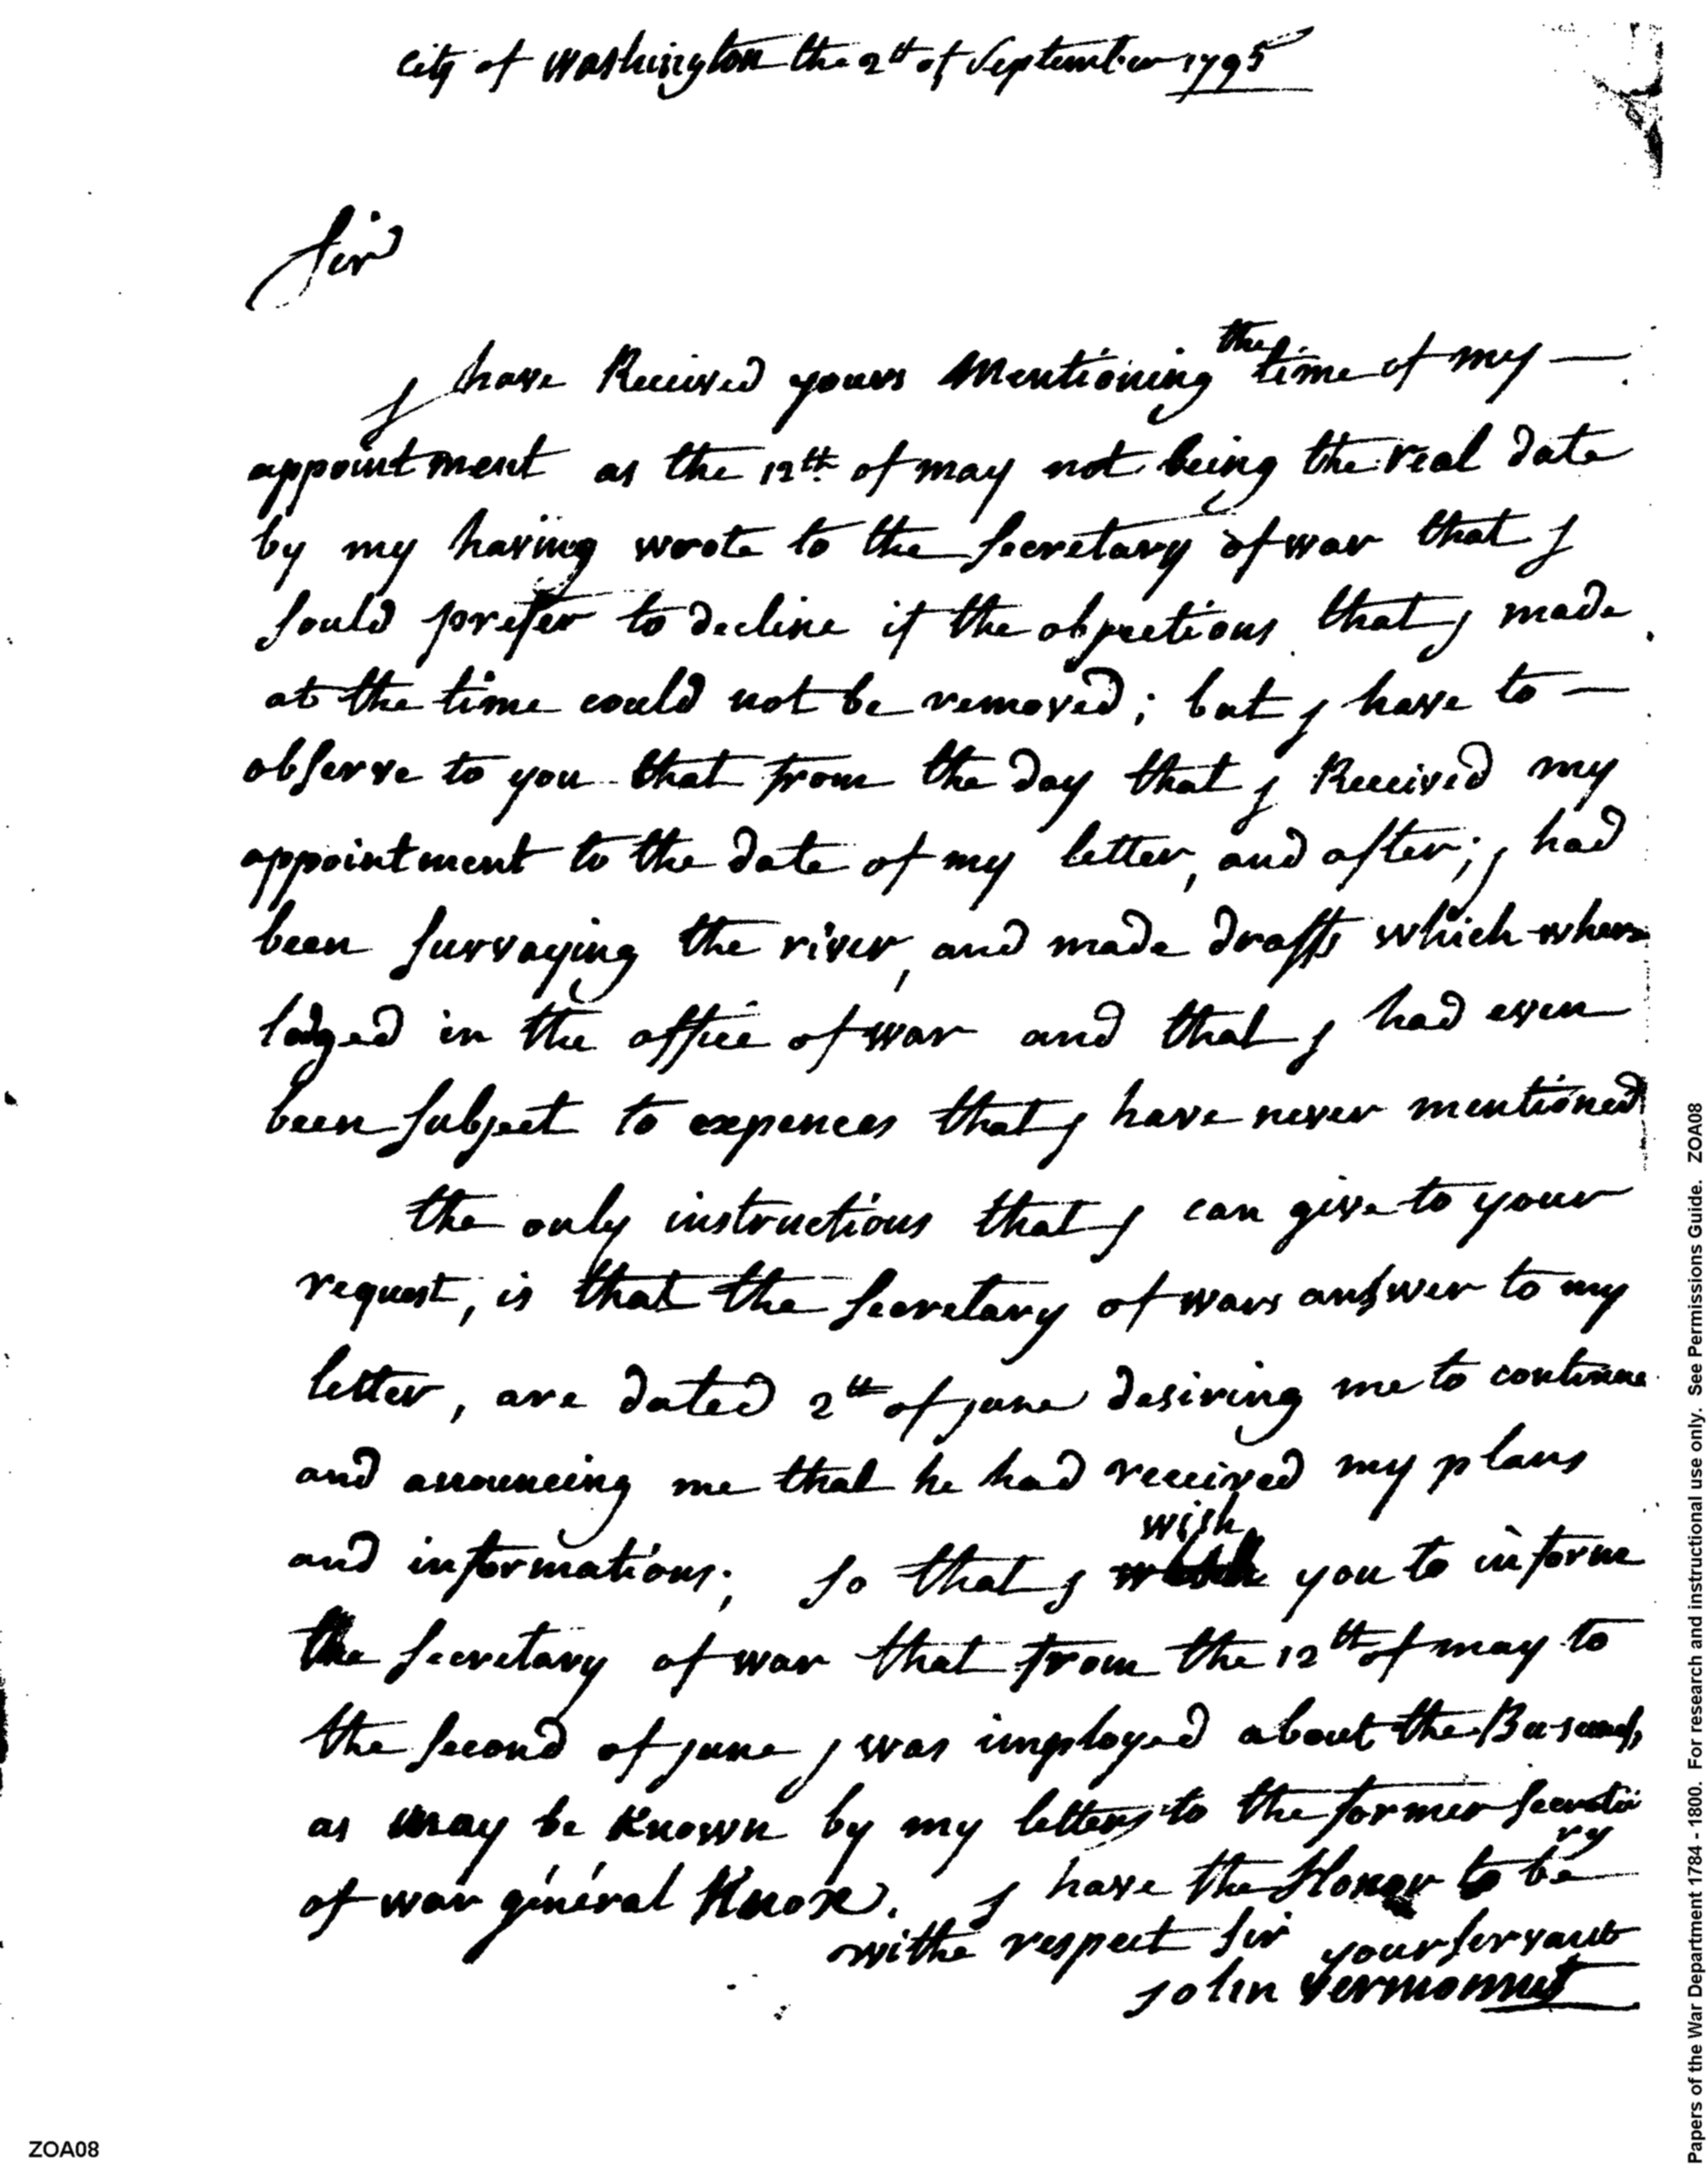 City of Washington the 2th of September 1795
Sir
I have Received yours Mentioning the time of my —
appointment as the 12th of may not being the real date
by my having wrote to the Secretary of war that I
Sould prefer to decline if the objections that I made
at the time could not be removed; but I have to —
observe to you that from the day that I Received my
appointment to the date of my letter, and after; I had
been Survaying the river, and made drafts which where
lodged in the office of war and that I had even
been Subject to expences that I have never mentioned
the only instructions that I can give to your
request, is that the Secretary of wars answer to my
letter, are dated 2th of june desiring me to continue
and anouncing me that he had received my plans
and informations; So that I wish you to inform
the Secretary of war that from the 12th of may to
the Second of june I was imployed about the
as may be Known by my letters to the former Secreta
ry
of war général Knox. I have the Honor to be
withe respect Sir your Servant
John Vermonnet
ZOA08
Papers of the War Department 1784 - 1800. For research and instructional use only. See Permissions Guide. ZOA08